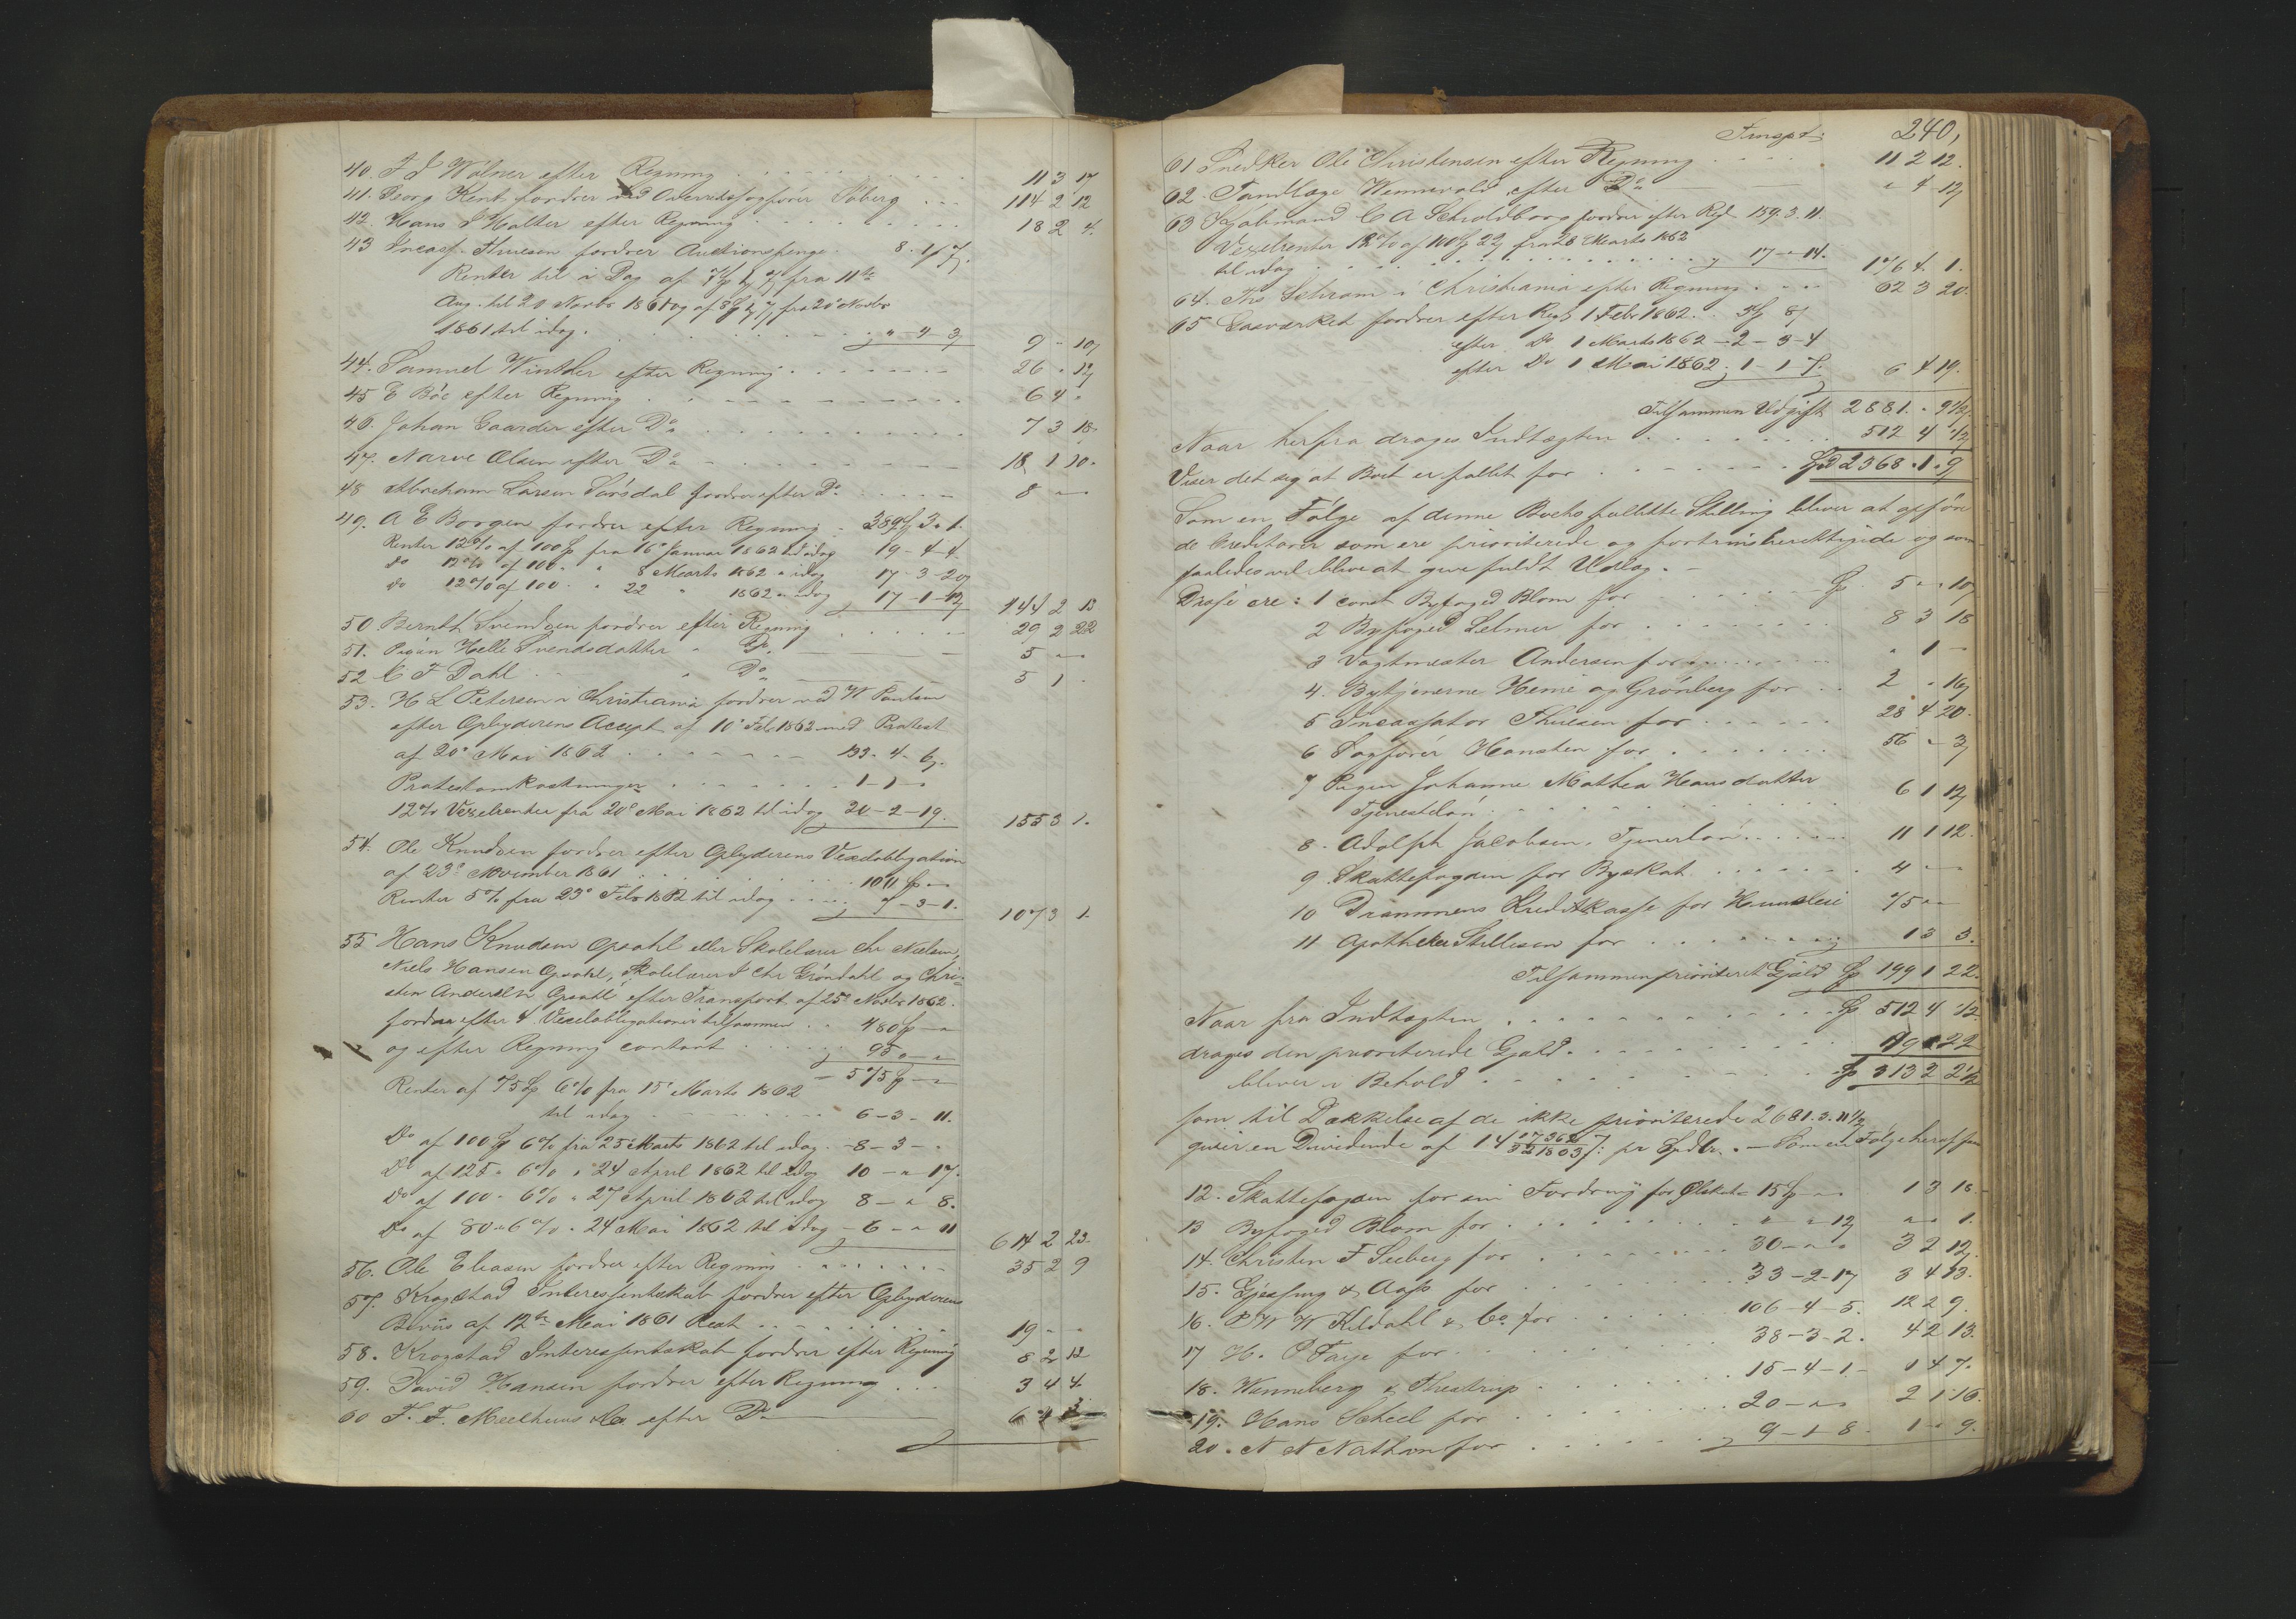 40. J J Wølner efter Regning 11 3 17
41. Georg Kent fordrer ved Overretssagfører Foberg 114 2 12
42. Hans J Holter efter Regning 18 2 4.
43 Incass. Thuesen fordrer Auctionspenge 8. 1 7.
Renter til i Dag af fra 11te
Aug. til 20 Novbr 1861 og af fra 20de Novbr
1861 til idag. " - 4 - 3
9 " 10
44. Samuel Winther efter Regning 26 " 12
45 E Bøe efter Regning 6 4 "
46. Johan Gaarder efter Do 7 3 18
47. Narve Olsen efter Do 18 1 10.
48 Abraham Larsen Sørsdal fordrer efter Do 8 " "
49. A E Borgen fordrer efter Regning 389 3. 1.
Renter 12% af 100 fra 16de Januar 1862 til idag 19 - 4 - 4
do 12% af 100. " 8 Marts 1862 " idag 17 - 3 - 20
do 12% af 100 " 22 " 1862 " idag 17 - 1 - 12
444 2 13
50 Bernth Svendsen fordrer efter Regning 29 2 22
51. Pigen Helle Svendsdatter " Do. 5 " "
52 C F Dahl " Do 5 1 "
53. H L Petersen i Christiania fordrer ved W Poulsen
efter Opbyderens Accept af 10de Feb 1862 med Protest
af 20de Mai 1862 133. 4. 6.
Protestomkostninger 1 - 1 - "
12% Vexelrenter fra 20de Mai 1862 til idag 20 - 2 - 19.
155 3 1.
54. Ole Knudsen fordrer efter Opbyderens Vexelobligation
af 23de November 1861
Renter 5% fra 23de Febr 1862 til idag - 3 - 1.
107 3 1.
55 Hans Knudsen Opsahl eller Skolelærer Chr Nielsen,
Niels Hansen Opsahl, Skolelærer J Chr Grøndahl og Chri-
sten Andersen Opsahl efter Transport af 25de Novbr 1862.
fordrer efter 4 Vexelobligationer tilsammen 480 " "
og efter Regning contant 95 " "
575 " "
Renter af 75 6% fra 15de Marts 1862
til idag 6 - 3 - 11.
Do af 100 6% fra 25de Marts 1862 til idag - 8 - 3 - "
Do af 125 " 6% " 24 April 1862 til idag 10 - " 17.
Do af 100 " 6% " 27 April 1862 til idag 8 - " 8.
Do af 80 " 6% " 24 Mai 1862 til idag - 6 - " 11
614 2 23
56. Ole Eliasen fordrer efter Regning 35 2 9
57. Krogstad Interessentskab fordrer efter Opbyderens
Beviis af 12te Mai 1861 Rest 19 " "
58. Krogstad Interessentskab fordrer efter Regning 8 2 12
59. David Hansen fordrer efter Regning 3 4 4.
60 F. F. Meelhuus & Co efter Do 6 4 3
Transpt: 240,
61 Snedker Ole Christensen efter Regning 11 2 12.
62. Tandlæge Wennevold efter Do " 4 12
63 Kjøbmand C A Scheldborg fordrer efter Rg 159. 3. 11.
Vexelrenter 12% af fra 26 Marts 1862
til idag 17 - " 14.
176 4. 1.
64. Ths Schram i Christiania efter Regning 62 3 20.
65 Gasværket fordrer efter Reg 1 Febr 1862.
efter Do 1 Marts 1862 - 2 - 3 - 4
efter Do 1 Mai 1862 1 - 1 7.
6 4 19.
Tilsammen Udgift 2881. " 9 1/2
Naar herfra drages Indtægten 512 4 1/2
Viser det sig at Boet er fallit for Spd 2368. 1. 9
Som en Følge af denne Boets fallitte Stilling bliver at
de Creditorer som ere prioriterede og fortrinsberettigede og som
saaledes vil blive at give fuldt Udlæg. -
Disse ere: 1 const Byfoged Blom for 5 " 10
2 Byfoged Selmer for 8 3 18
3 Vagtmester Andersen for " 1 "
4. Bytjenerne Hemie og Grønberg for 2 " 16
5 Incassator Thuesen for 28 4 20.
6 Sagfører Hansten for 56 " 3
7 Pigen Johanne Mathea Hansdatter
Tjenesteløn 6 1 12
8. Adolph Jacobsen, Tjenerløn 11 1 12.
9. Skattefogden for Byskat 4 " "
10 Drammens Kreditkasse for Huusleie 75 " "
11 Apotheker Stillesen for 1 3 3.
Tilsammen prioriteret Gjæld 199 1 22.
Naar fra Indtægten 512 4 1/2
drages den prioriterede Gjæld 199 1 22
bliver i Behold 313 2 2 1/2
som til Dækkelse af de ikke prioriterede 2681. 3. 11 1/2
giver en Dividende af 14 17362/321803 pr Spdlr. - Som en Følge heraf
12. Skattefogden for sin Fordring for Ølskat 15 " " 1 3 18.
13 Byfoged Blom for " " 12 " " 1.
14. Christen F Seeberg for 30 - " " 3 2 12.
15. Gjessing & Aass for 33 - 2 - 17 3 4 13.
16. P W W Kildahl & Co for 106 - 4 - 5. 12 2 9.
17 H. C Faye for 38 - 3 - 2. 4 2 13.
18. Wanneberg & Thestrup 15 - 4 - 1 - 1 4 7.
19. Hans Scheel for 20 - " " 2 1 16.
20. N N Nathan for 9 - 1 - 8. 1 " 9.